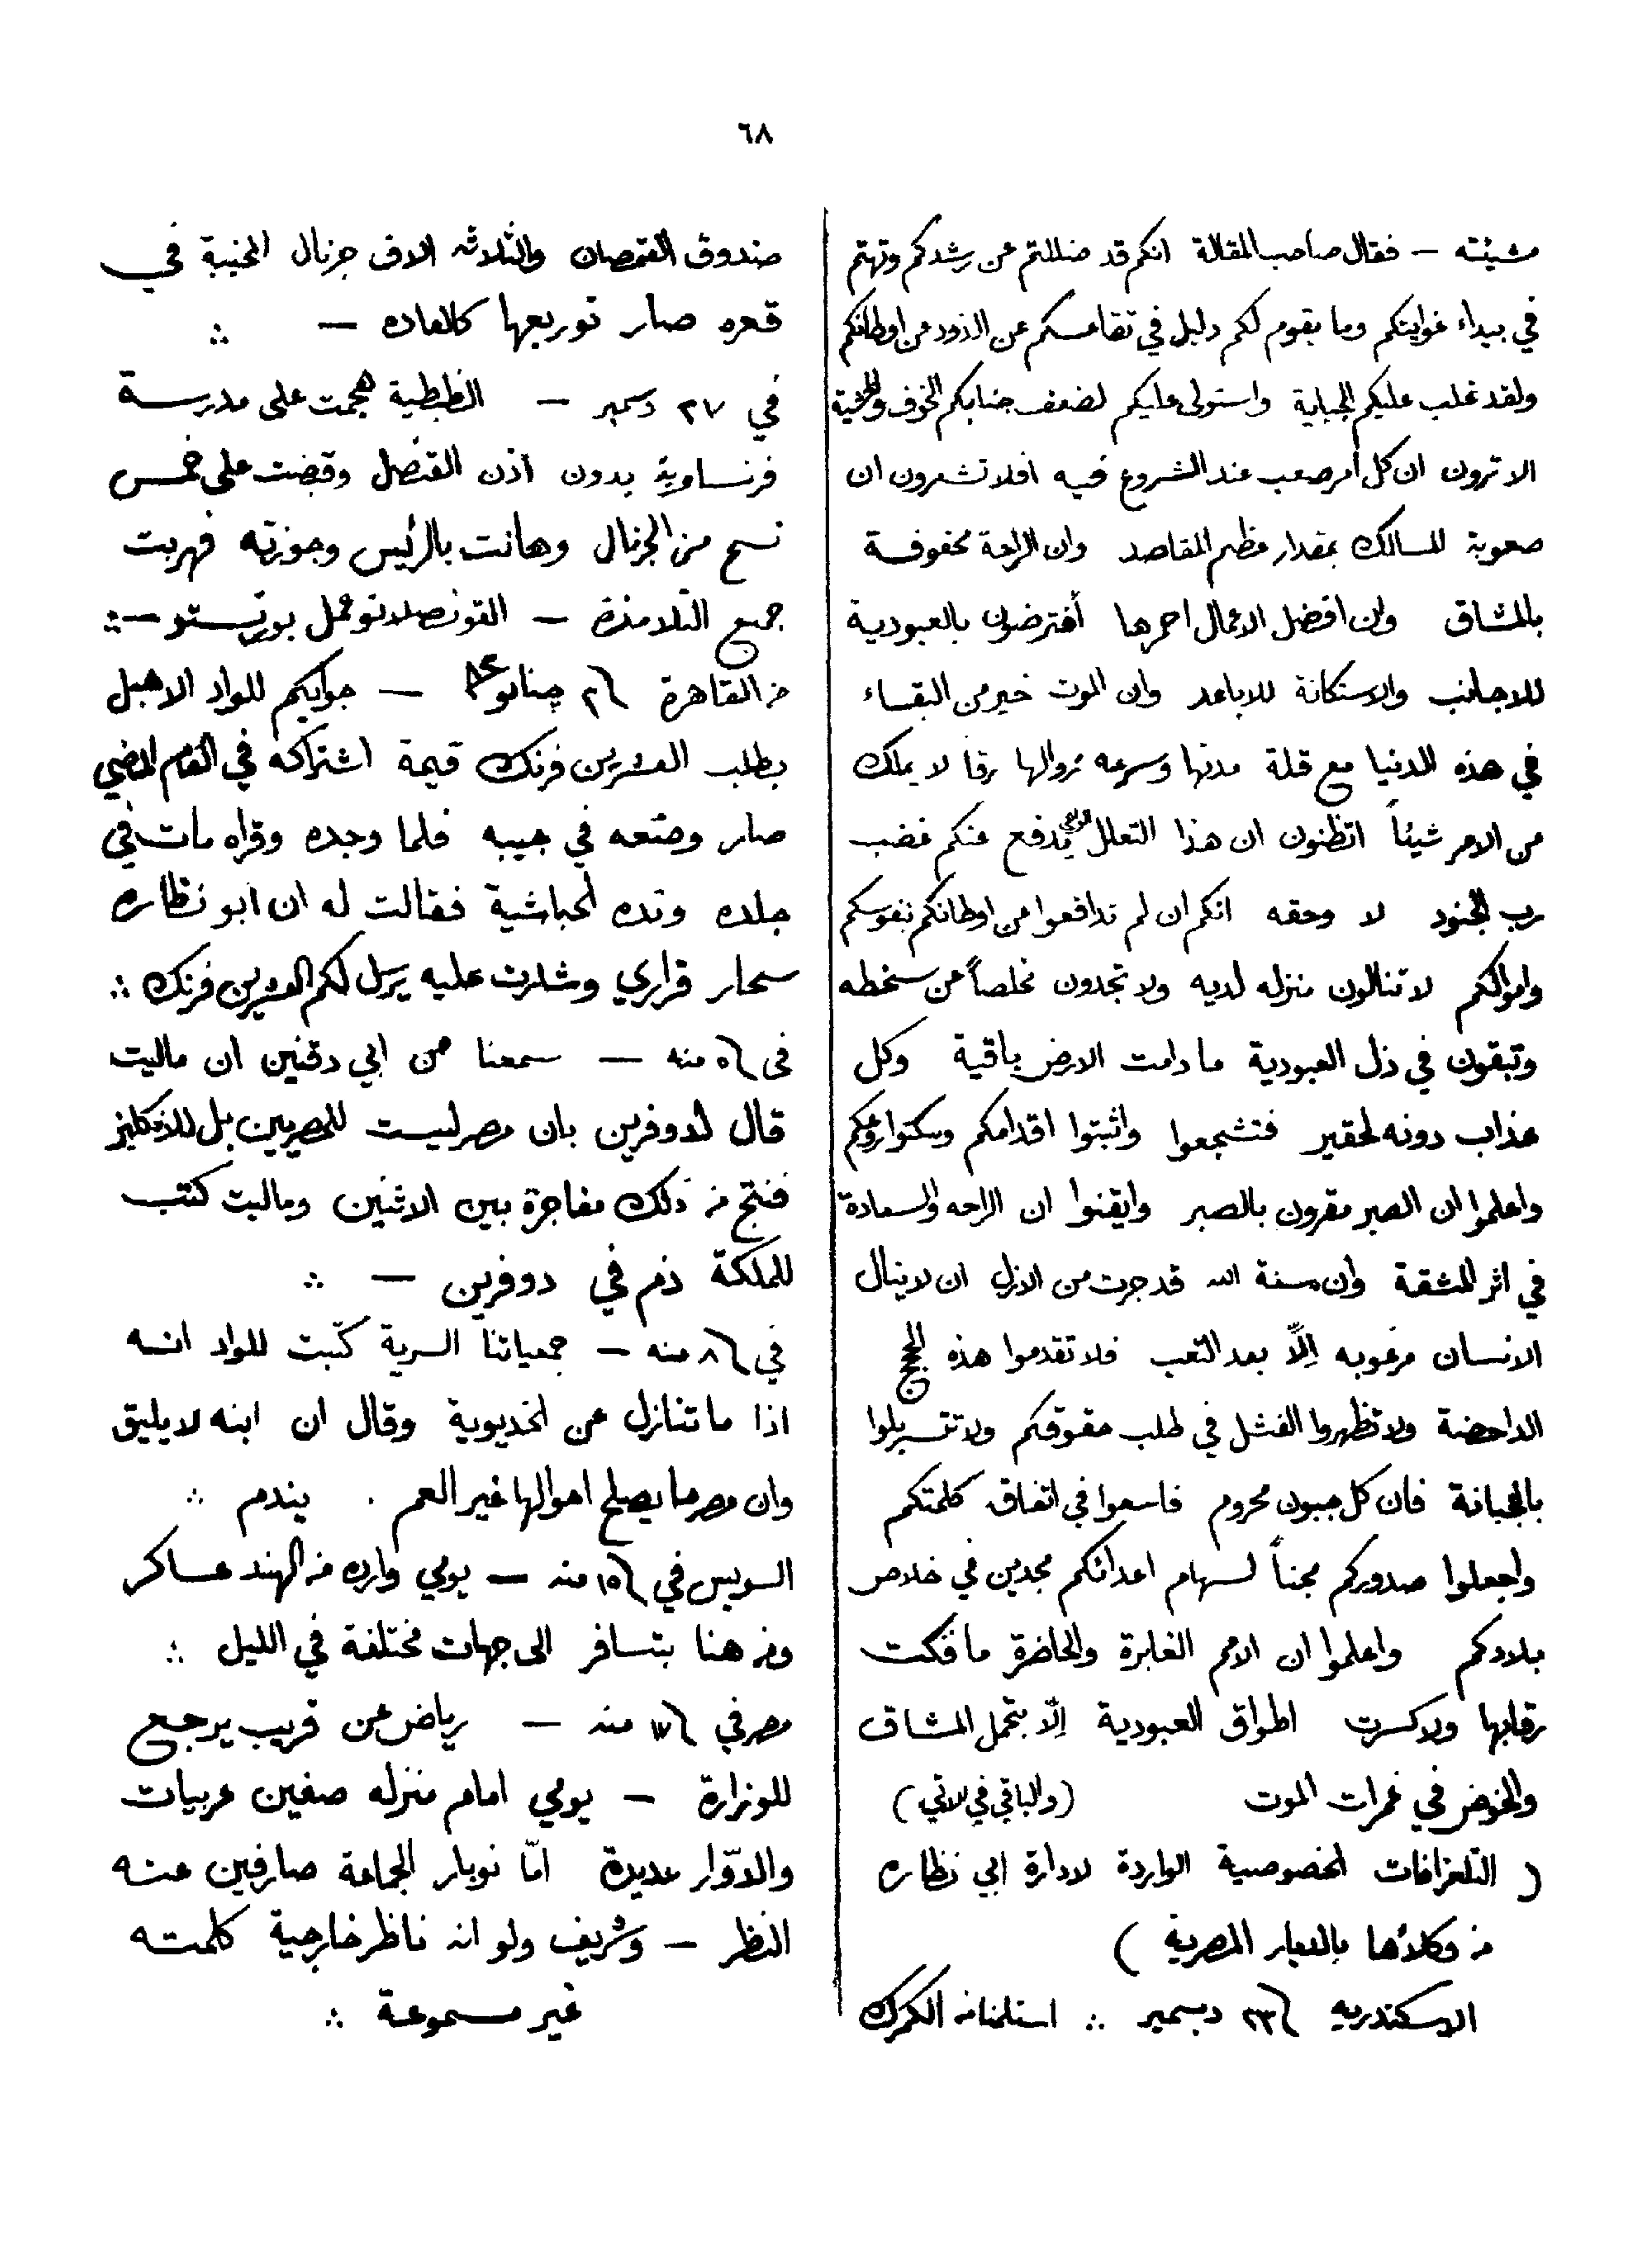 ٦٨
مشيئته — فقال صاحب المقالة انكم قد ضللتم عن رشدكم وتهتم
في بيداء غوايتكم وما يقوم لكم دليل في تقاعسكم عن الذود عن اوطانكم
ولقد غلب عليكم الجباية واستولى عليكم لضعف جنابكم الخوف والخشية
الا ترون ان كل أمر صعب عند الشروع فيه افلا تشعرون ان
صعوبة المسالك بمقدار عظم المقاصد وان الراحة محفوفة
بالمشاق وان افضل الاعمال احمزها أفترضون بالعبودية
للاجانب والاستكانة للاباعد وان الموت خير من البقاء
في هذه الدنيا مع قلة مدتها وسرعه زوالها رقا لا يملك
من الامر شيئاً اتظنون ان هذا التعلل يدفع عنكم غضب
رب الجنود لا وحقه انكم ان لم تدافعوا عن اوطانكم بنفوسكم
واموالكم لا تنالون منزله لديه ولا تجدون مخلصاً من سخطه
وتبقون في ذل العبودية ما دامت الارض باقية وكل
عذاب دونه لحقير فتشجعوا واثبتوا اقدامكم وسكنوا روعكم
واعلموا ان الصبر مقرون بالصبر وايقنوا ان الراحه والسعادة
في اثر المشقة وان سنة الله قد جرت من الازل ان لا ينال
الانسان مرغوبه إلّا بعد التعب فلا تقدموا هذه الحجج
الداحضة ولا تظهروا الفشل في طلب حقوقكم ولا تتسربلوا
بالجبانة فان كل جبون محروم فاسعوا في اتفاق كلمتكم
واجعلوا صدوركم مجناً لسهام اعدائكم مجدين في خلاص
بلادكم واعلموا ان الامم الغابرة والحاضرة ما فكت
رقابها ولا كسرت اطواق العبودية إلّا بتحمل المشاق
والخوض في غمرات الموت (والباقي في الآتي)
( التلغرافات الخصوصية الواردة لادارة ابي نظاره
من وكلائها بالديار المصرية )
الاسكندريه في ٢٣ ديسمبر ∴ استلمنا من الكمرك
صندوق القمصان والثلاثه الاف جرنال المخبية في
قعره صار توريعها كالعاده — ∴
في ٢٧ دسمبر — الظبطية هجمت على مدرسة
فرنساوية بدون اذن القنصل وقبضت على خمس
نسخ من الجرنال وهانت بالرئيس وجوزته فهربت
جميع التلامذة — القونصلاتو عمل بورتستو — ∴
من القاهرة في ٢ جنايو ٨٤ — جوابكم للواد الاهبل
بطلب العشرين فرنك قيمة اشتراكه في العام الماضي
صار وضعه في جيبه فلما وجده وقراه مات في
جلده ونده لخباشية فقالت له ان ابو نظاره
سحار قراري وشارت عليه يرسل لكم العشرين فرنك ∴
في ٥ منه — سمعنا من ابي دقنين ان ماليت
قال لدوفرين بان مصر ليست للمصريين بل للانكليز
فنتج من ذلك مفاجرة بين الاثنين وماليت كتب
للملكة ذم في دوفرين — ∴
في ٨ منه — جمعياتنا السرية كتبت للواد انه
اذا ما تنازل عن الخديوية وقال ان ابنه لا يليق
وان مصر ما يصلح احوالها غير العم . يندم ∴
السويس في ١٥ منه — يومي وارده من الهند عساكر
ومن هنا بتسافر الى جهات مختلفة في الليل ∴
مصر في ١٧ منه — رياض عن قريب يرجع
للوزارة — يومي امام منزله صفين عربيات
والدوّار عديدة امّا نوبار الجماعة صارفين عنه
النظر — وشريف ولو انه ناظر خارجية كلمته
غير مسموعة ∴